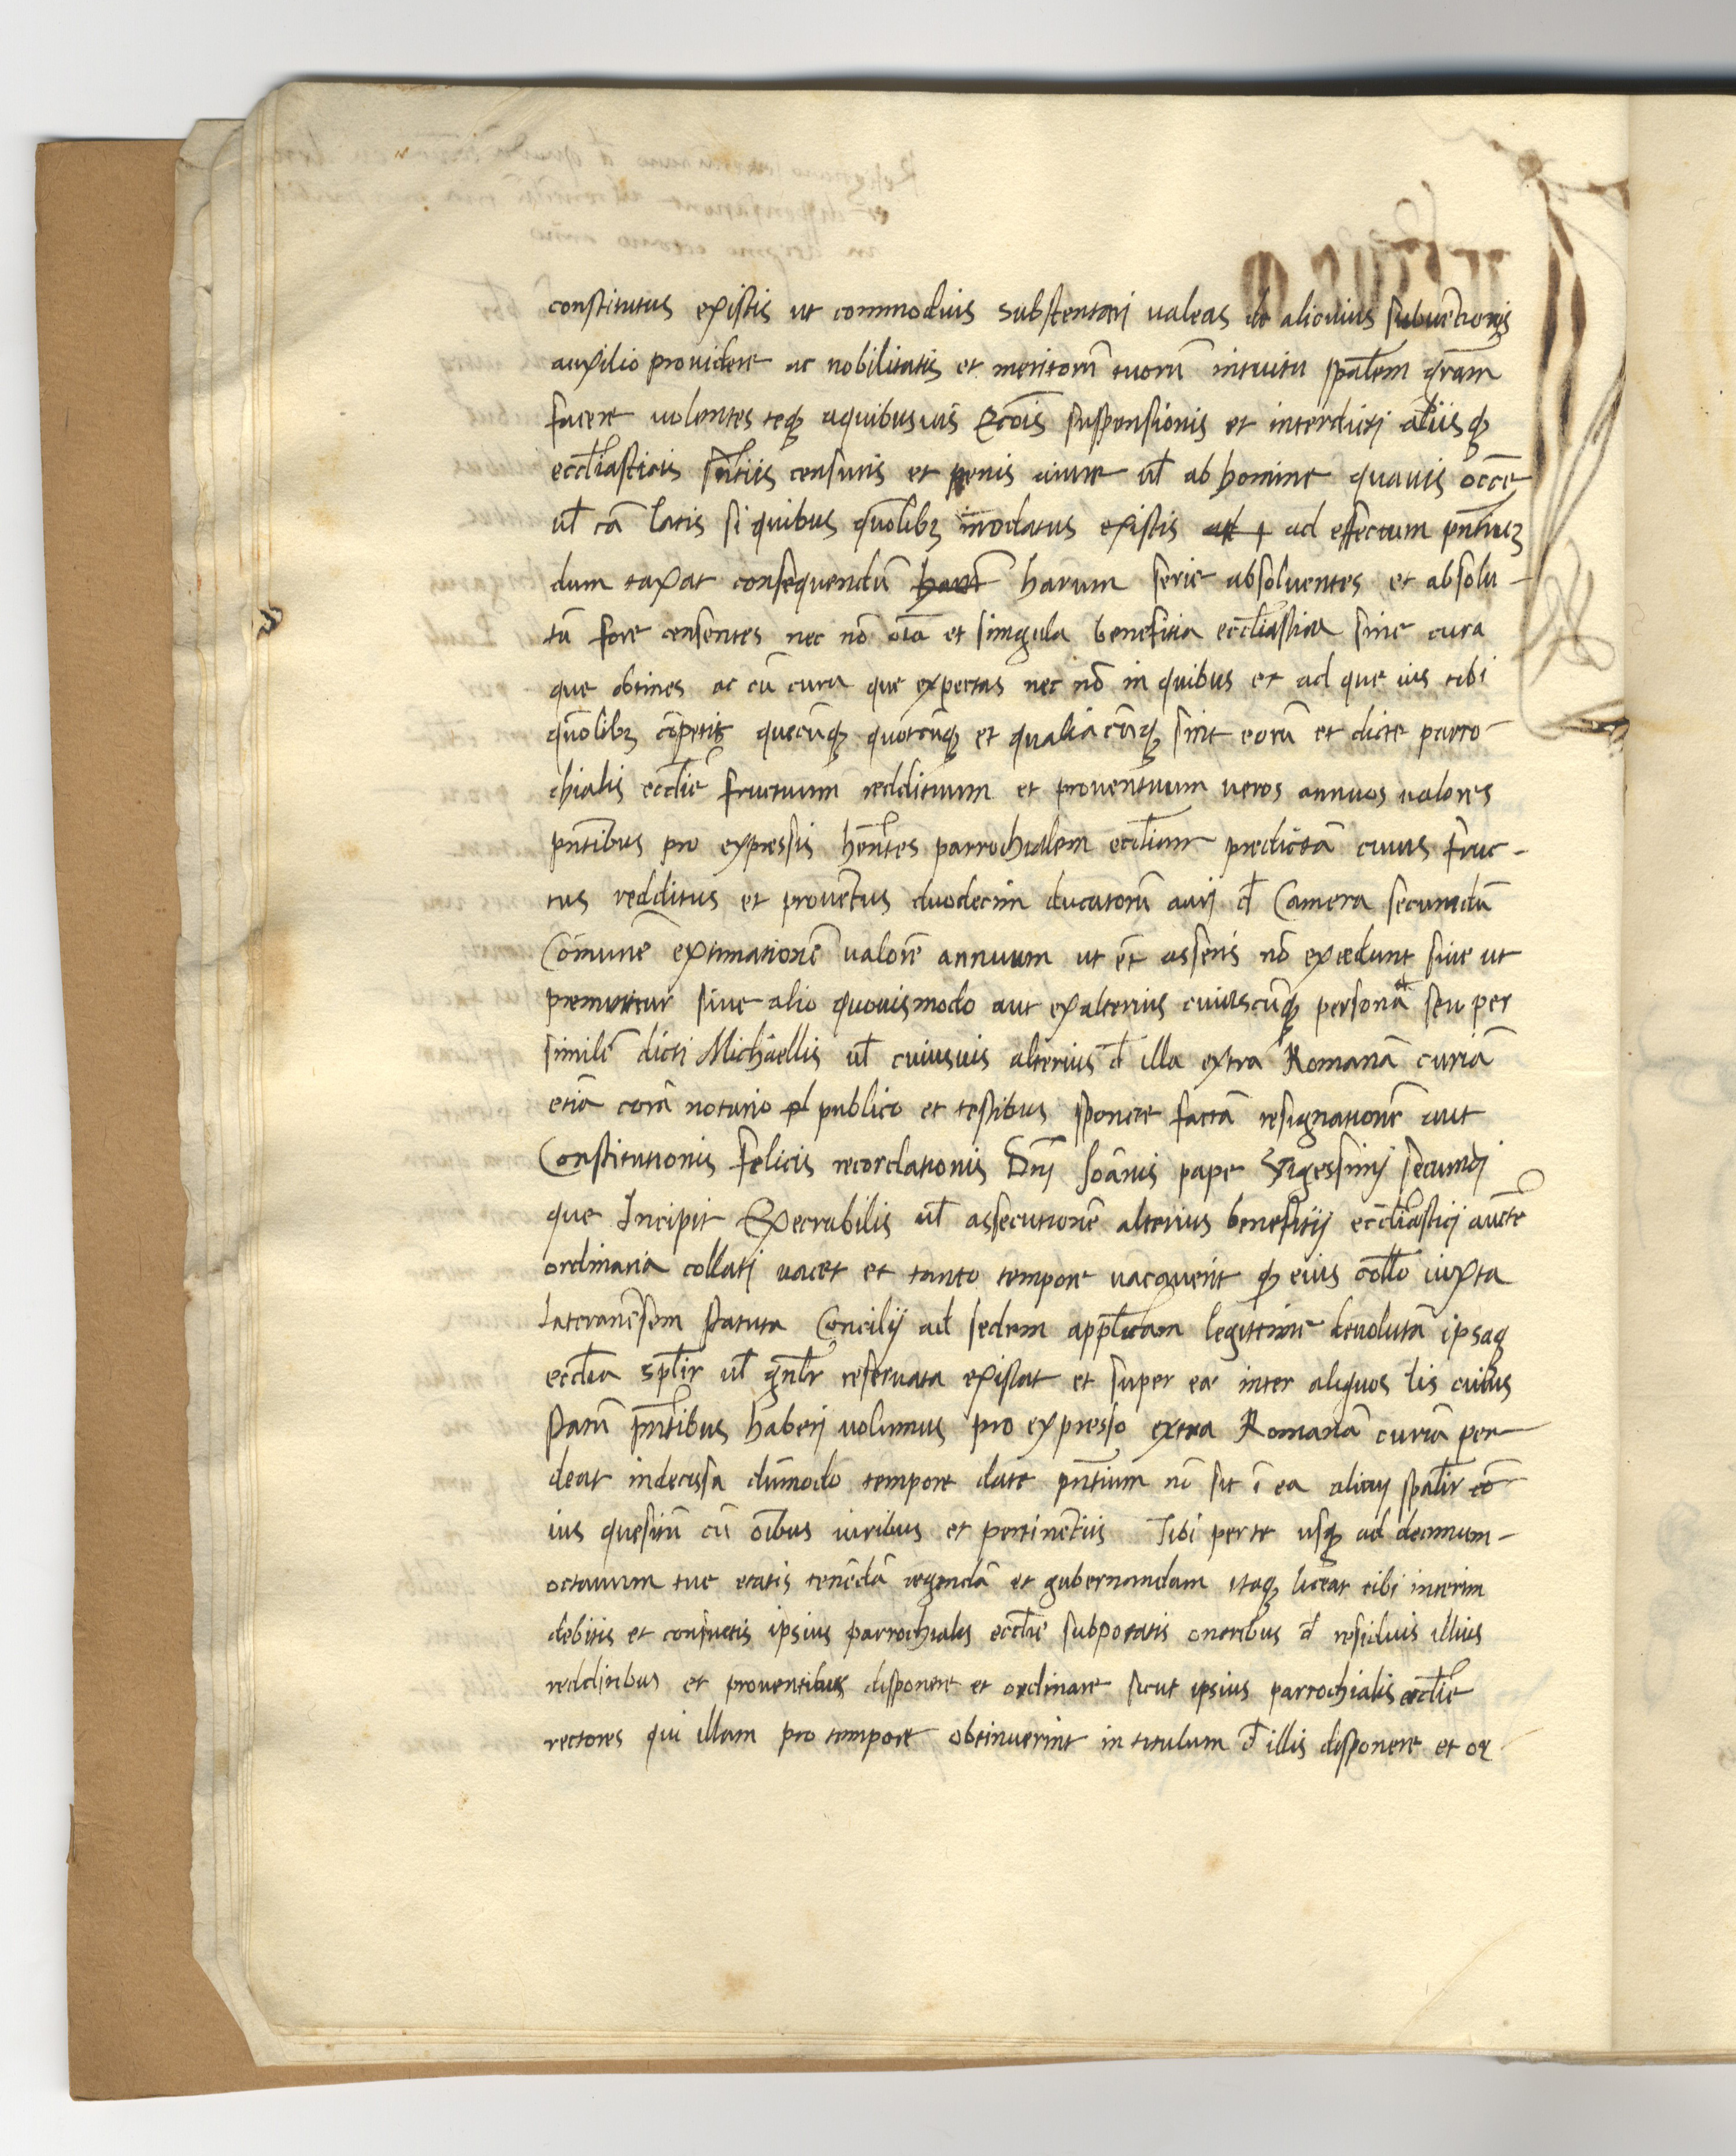 constitutus existis ut commodius substentarj ualeas de alicuius subuẽtionis
auxilio prouidere ac nobilitatis et meritorũ tuorũ intuitu spãlem grãm
facere uolentes teqȝ aquibusuis Excõis suspensionis et interdicti alijsqȝ
eccl̃iasticis sñtijs censuris et penis aiure ul̃ ab homine quauis occẽ
ul̃ cã latis si quibus quõlibȝ inodatus existis ad effectum pñtiuȝ
dum taxat consequendũ harum serie absoluentes et absolu-
tũ fore censentes nec nõ oĩa et singula benefitia eccl̃iastica sine cura
que obtines ac cũ cura que expectas nec nõ in quibus et ad que ius tibi
quõlibȝ cõpetit quecũqȝ quotcũqȝ et qualiacũqȝ sint eorũ et dicte parro-
chialis eccl̃ie fructuum reddituum et prouentuum ueros annuos ualores
pñtibus pro expressis hẽntes parrochialem eccl̃iam predictã cuius fruc-
tus redditus et prouẽtus duodecim ducatorũ aurj d̃ Camera secundũ
Cõmunẽ extimationẽ ualorẽ annuum ut ẽt asseris nõ excedunt siue ut
premittitur siue alio quouismodo aut exalterius cuiuscũqȝ persona seu per
similẽ dicti Michaellis ul̃ cuiusuis alterius d̃ illa extra Romanã curiã
etiã corã notario publico et testibus sponte factã resignationẽ aut
Constitutionis felicis recordationis Dnĩ Joãnis pape Vigessimj secundj
que Incipit Execrabilis ul̃ assecutionẽ alterius benefitij eccl̃iasticj auctẽ
ordinaria collatj uacet et tanto tempore uacauerit qȝ eius collõ iuxta
Lateranẽsem statuta Concilij ad sedem appl̃icam legittime deuoluta ipsaqȝ
eccl̃ia spl̃ir ul̃ gñlr reseruata existat et super ea inter aliquos lis cuius
statũ pñtibus haberj uolumus pro expresso extra Romanã curiã pen-
deat indecissa dũmodo tempore datẽ pñtium nõ sit ĩ ea alicuj spãlir
ius quesitũ cũ oĩbus iuribus et pertinẽtiis Tibi per te usqȝ ad decimum-
octauum tue etatis tenẽdã regendã et gubernandam itaqȝ liceat tibi interim
debitis et consuetis ipsius parrochialis eccl̃ie subportatis oneribus d̃ residuis illius
redditibus et prouentibus disponere et ordinare sicut ipsius parrochialis eccl̃ie
rectores qui illam pro tempore obtinuerint in titulum d̃ illis disponere et or